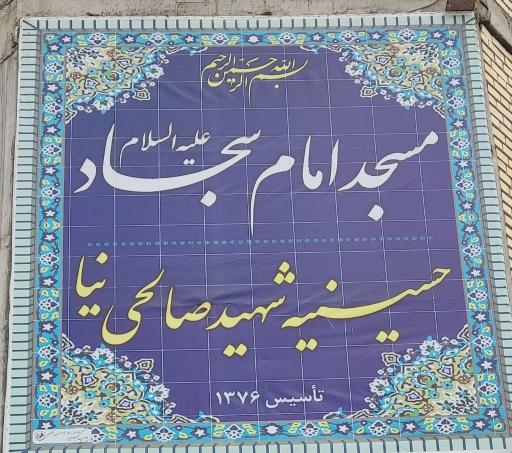 بسم الله الرحمن الرحیم
مسجد امام سجاد علیه السلام
حسینیه شهید صالحی نیا
تأسیس ۱۳۷۶